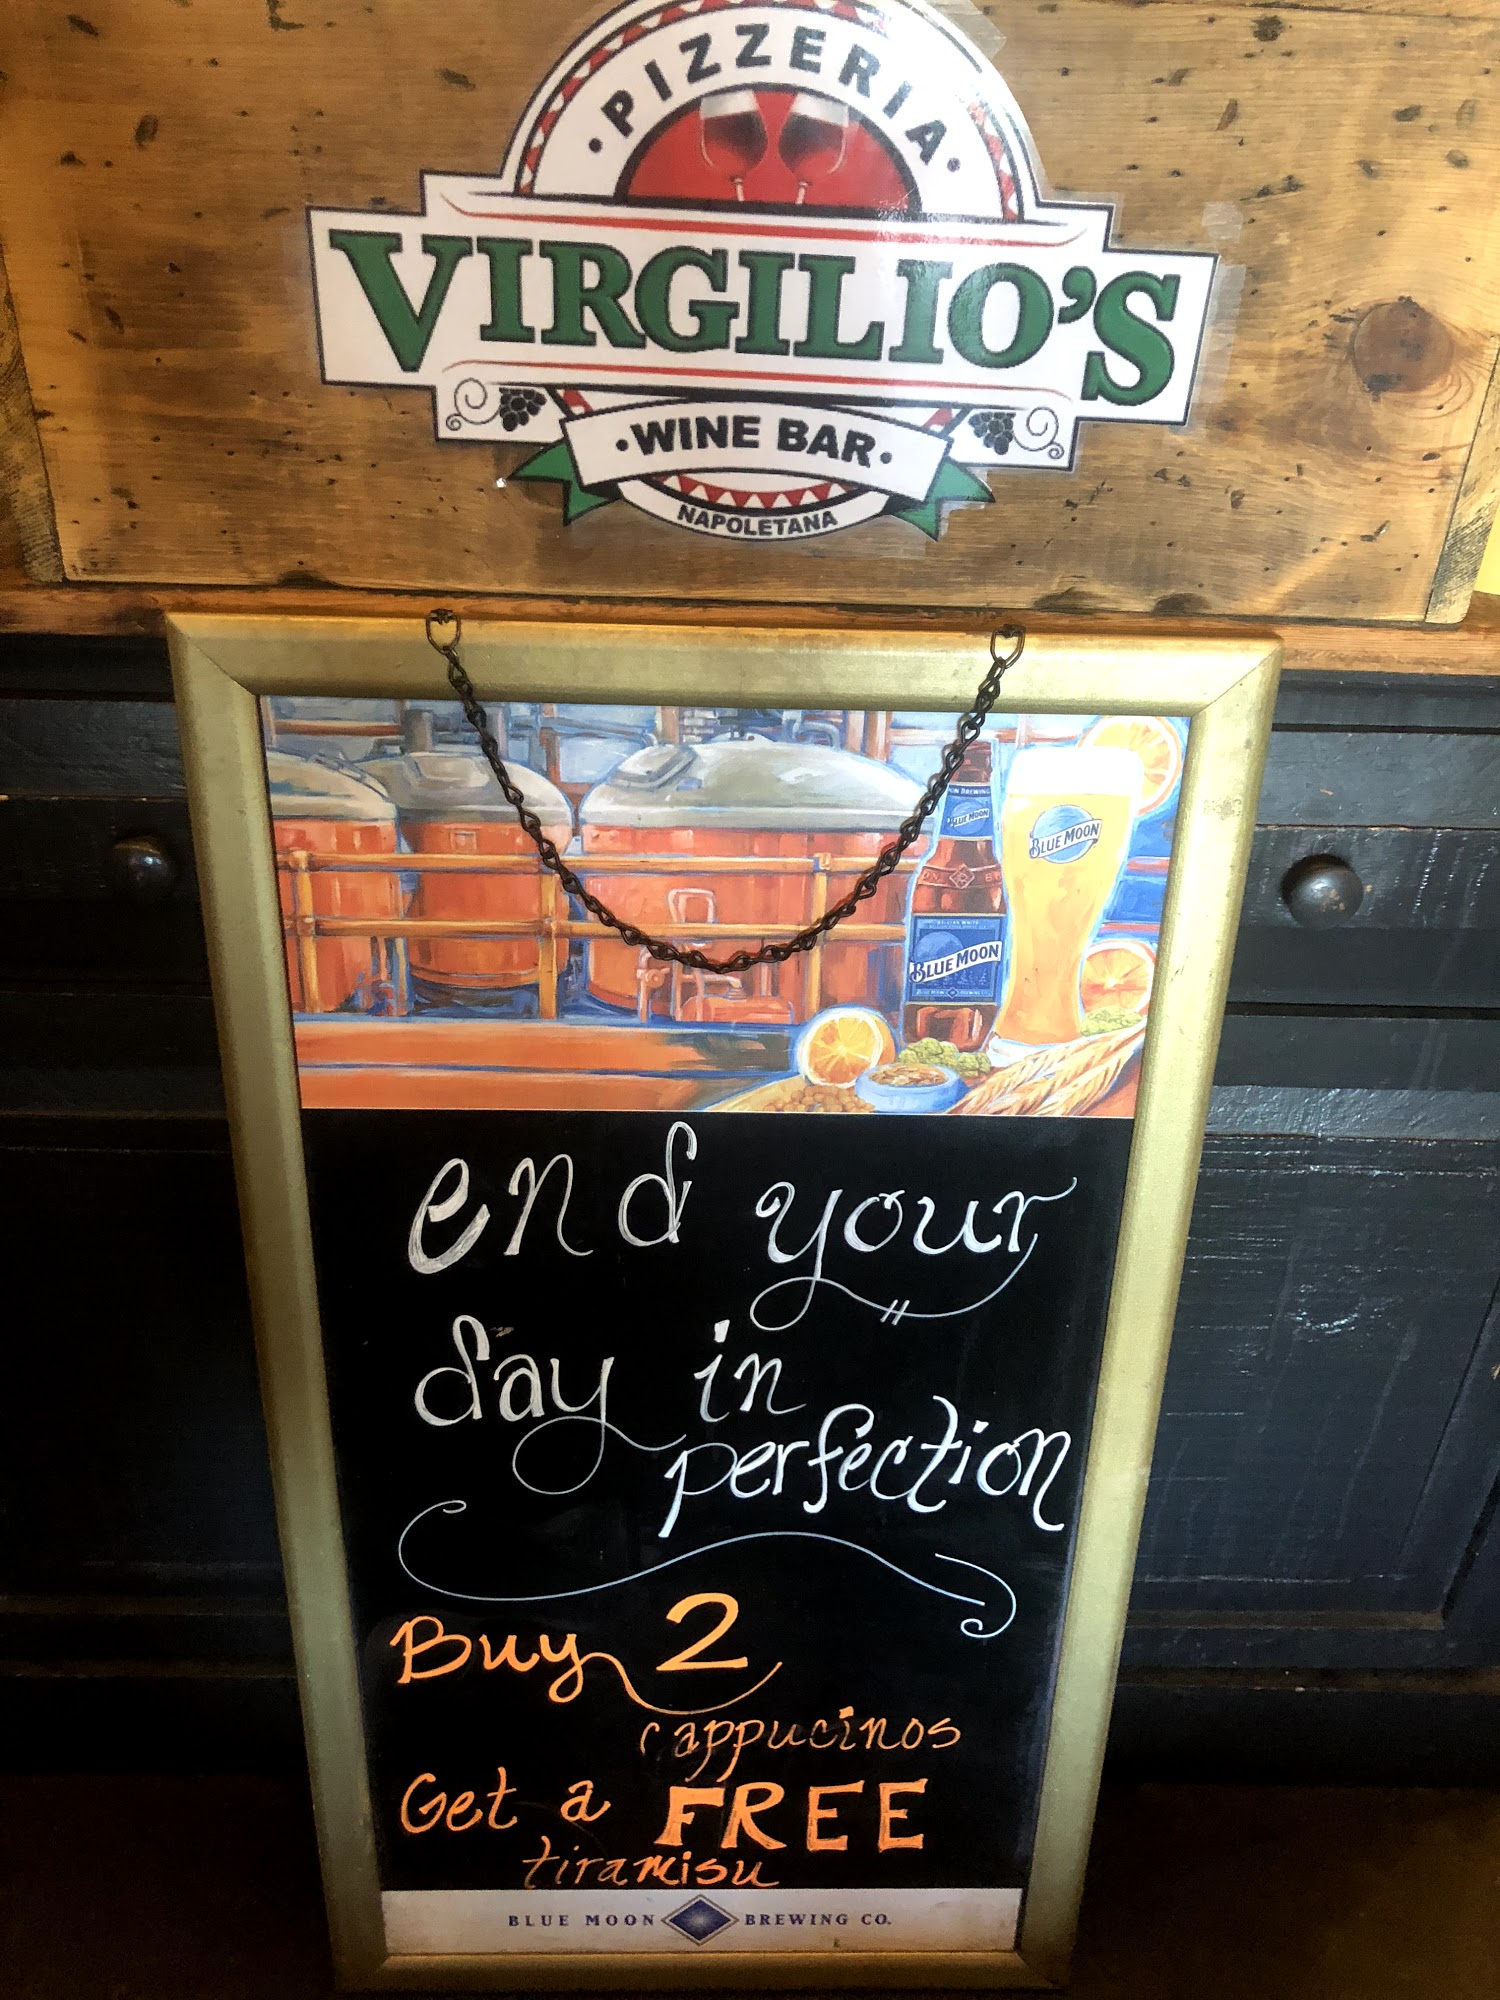 · PIZZERIA ·
VIRGILIO'S
· WINE BAR ·
NAPOLETANA
BLUE MOON
BLUE MOON
BLUE MOON
end your
day in
perfection
Buy 2
cappucinos
Get a FREE
tiramisu
BLUE MOON BREWING CO.